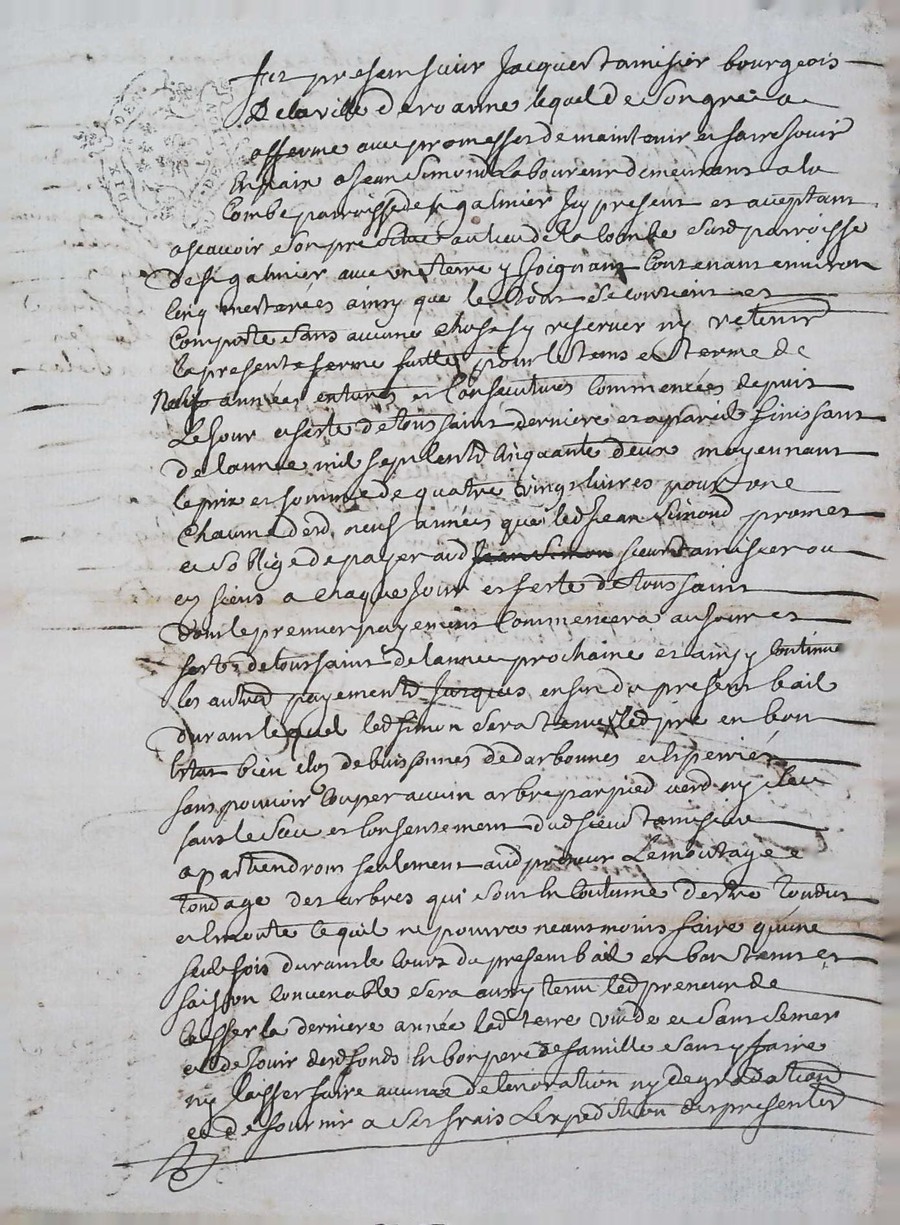 fut present sieur Jacques tamisier bourgeois
de la ville de roanne lequel de son gré a
afferme avec promesses de maintenir et faire jouir
en paix a Jean Simond Laboureur demeurant a la
Combe parroisse de st galmier Icy present et aceptant
a scavoir son pré situé au lieu de la Combe susd parroisse
de st galmier avec une terre y joignant contenant environ
cinq mesterées ainsy que le tout se contient et
comporte sans aucune chose sy reserver ny retenir
la presente ferme faitte pour le tems et terme de
neuf années entieres et consecutives commencées depuis
le jour et feste de toussaint derniere et a pareil finissant
de lannee mil sept cent cinquante deux moyennant
le prix et somme de quatre vingt livres pour une
chacune desd neuf années que led Jean Simond promet
et soblige de payer aud Jean Simon sieur tamisier ou
es siens a chaque jour et feste de toussaint
dont le premier payement commencera au jour et
feste de toussaint de lannee prochaine et ainsy continue
les autres payements jusques en fin du present bail
durant lequel led Simon sera tenu led pré en bon
Estat bien clos de buissonnes dedarbonnes et
sans pouvoir couper aucun arbre par pied verd ny sec
sans le sceu et consentement dud sieur tamisier
apartiendront seulement aud preneur Lemontage e
tondage des arbres qui sont en coutume destre tondus
et emonte ce quil ne pourra neansmoins faire quune
seule fois durant le cours du present bail en bon tems et
saison convenable sera aussy tenu led preneur de
lesser la derniere année lad terre vuide et sans semer
et de jouir desd fonds en bon pere de famille sans y faire
ny laisser faire aucune deterioration ny degradation
et de fournir a ses frais Lexpedition des presentes